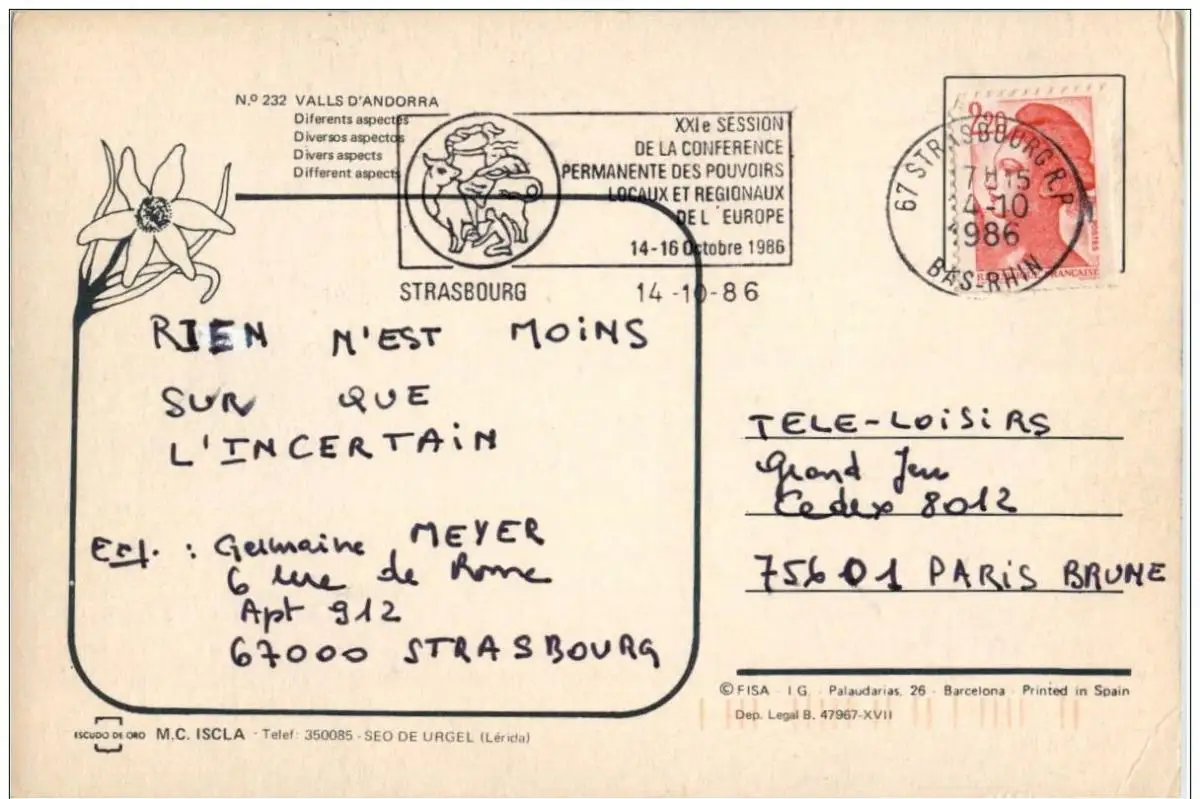 N.º 232 VALLS D'ANDORRA
Diferents aspectes
Diversos aspectos
Divers aspects
Different aspects
XXIe SESSION
DE LA CONFERENCE
PERMANENTE DES POUVOIRS
LOCAUX ET REGIONAUX
DE L'EUROPE
14-16 Octobre 1986
STRASBOURG 14-10-86
2,20
67 STRASBOURG R.P
7H15
14-10
1986
BAS-RHIN
POSTES
REPUBLIQUE FRANÇAISE
RIEN N'EST MOINS
SUR QUE
L'INCERTAIN
Exp. : Germaine MEYER
6 rue de Rome
Apt 912
67000 STRASBOURG
TELE-LOISIRS
Grand Jeu
Cedex 8012
75601 PARIS BRUNE
© FISA - I.G. - Palaudarias, 26 - Barcelona - Printed in Spain
Dep. Legal B. 47967-XVII
ESCUDO DE ORO M.C. ISCLA - Telef: 350085 - SEO DE URGEL (Lérida)